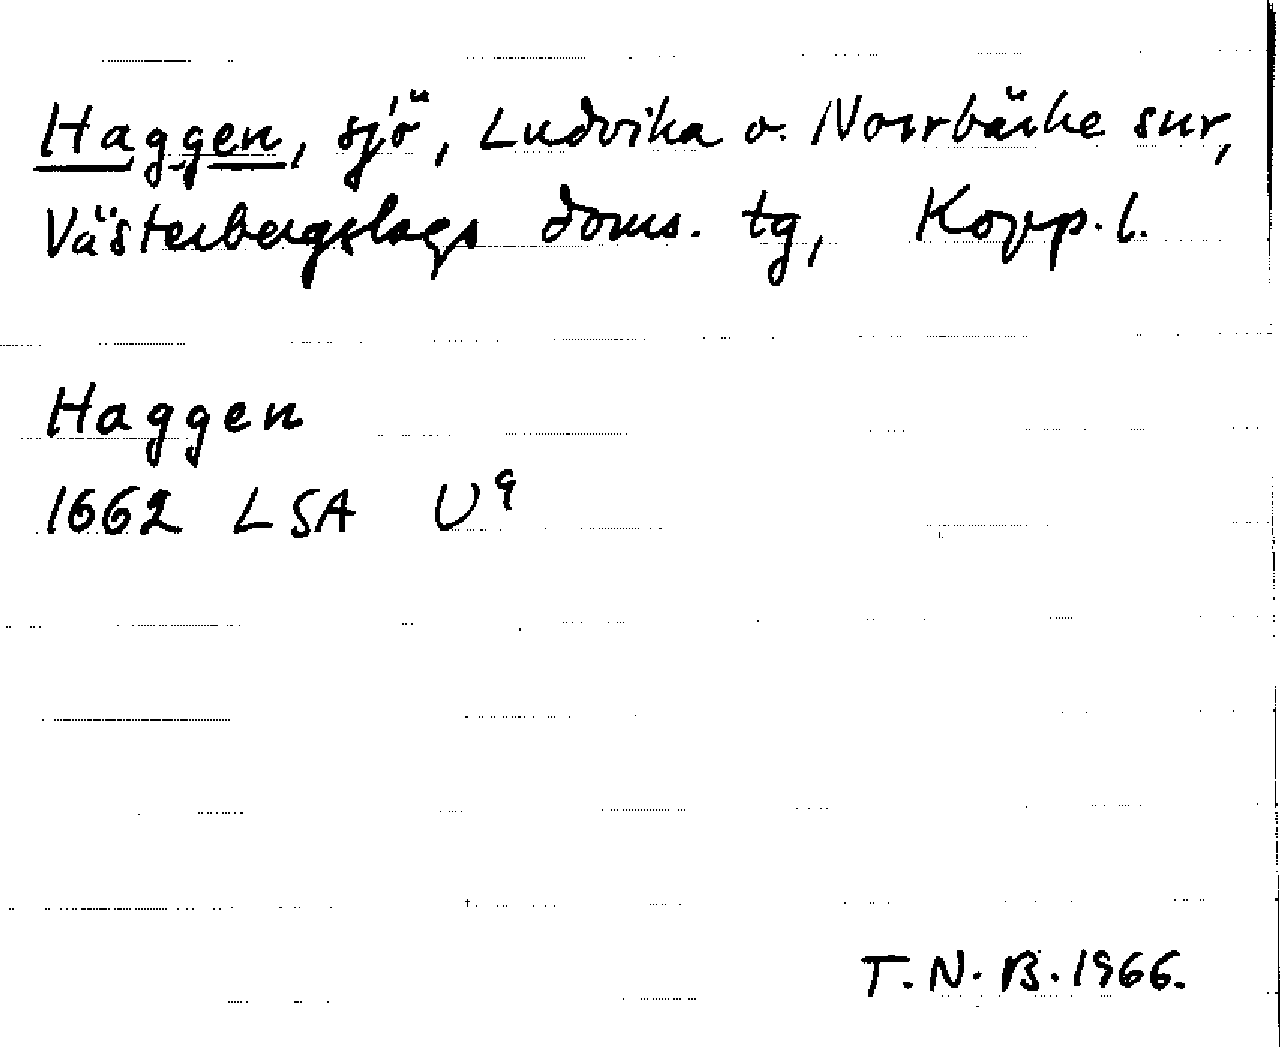 Haggen, sjö, Ludvika o. Norrbärke snr,
Västerbergslags doms. tg, Kopp. l.
Haggen
1662 LSA U9
T.N.B. 1966.